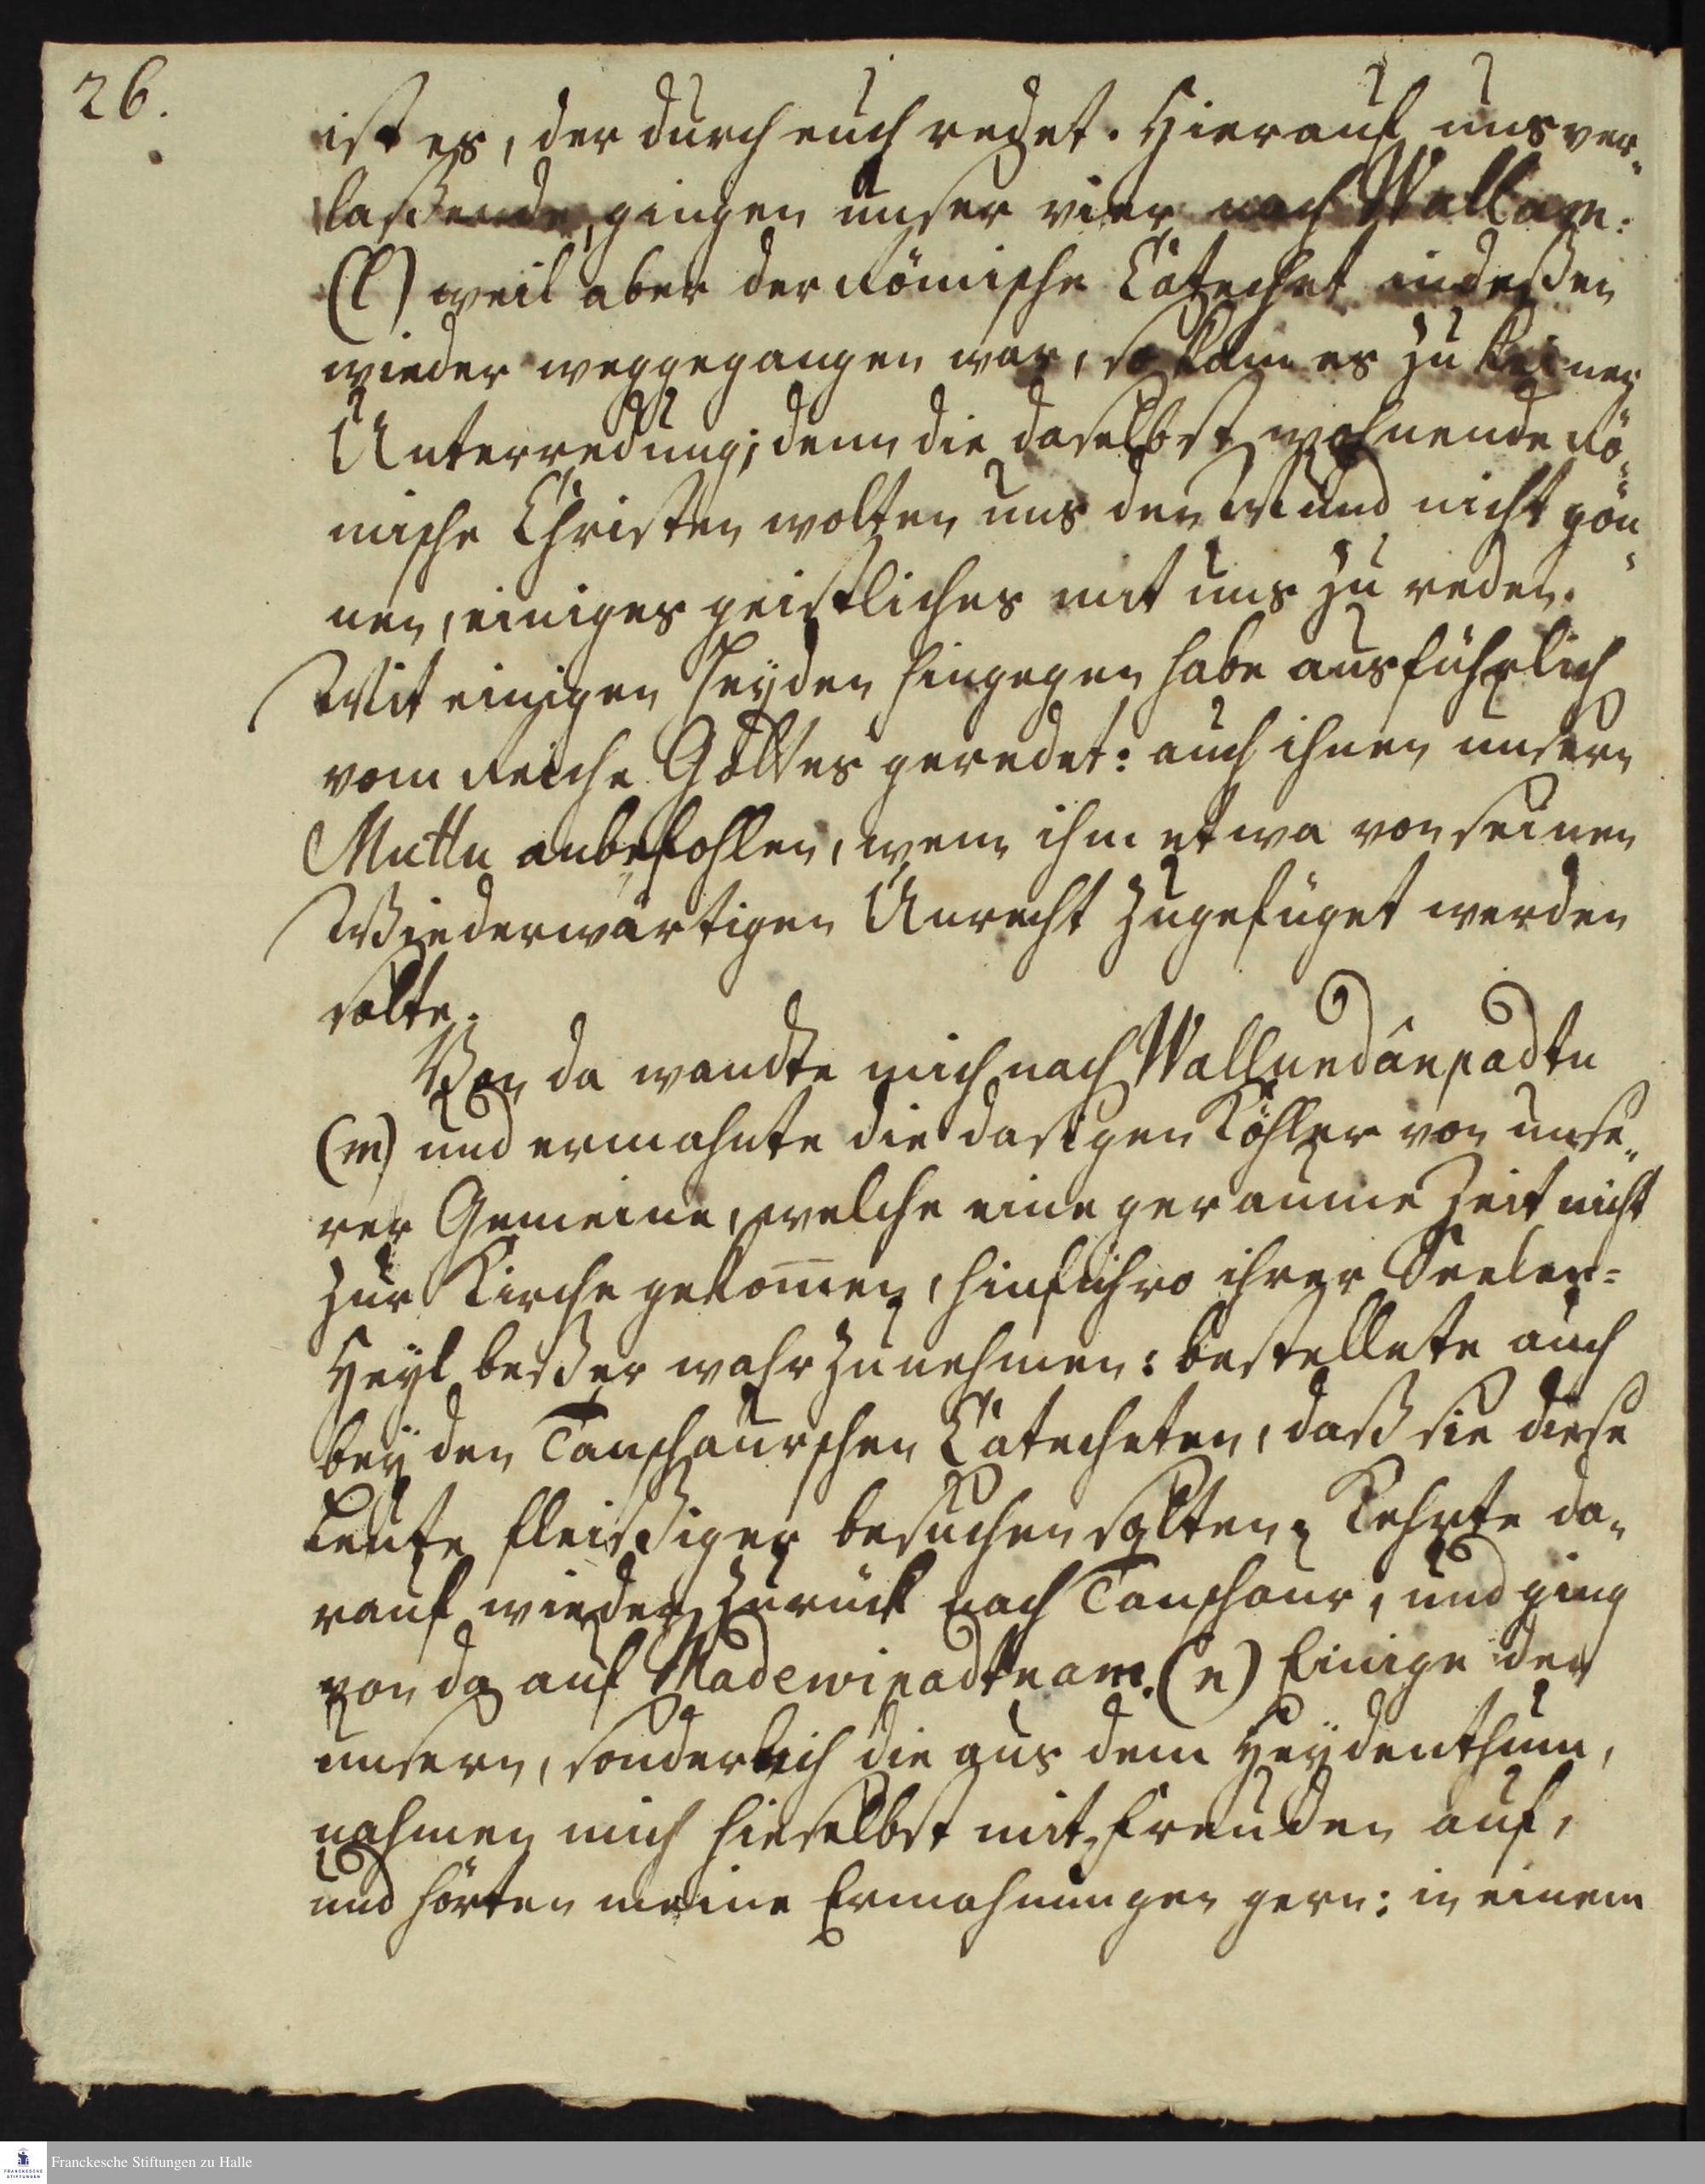 26.
ist es, der durch euch redet. Hierauf uns ver„
laßende, gingen unser vier nach Wallam:
(l) weil aber der Römische Catechet indeßen
wieder weggegangen war, so kam es zu keiner
Unterredung; denn die daselbst wohnende Rö„
mische Christen wolten uns den Mund nicht gön„
nen, einiges geistliches mit uns zu reden.
Mit einigen Heyden hingegen habe ausführlich
vom Reiche Gottes geredet: auch ihnen unsern
Muttu anbefohlen, wenn ihm etwa von seinen
Wiederwärtigen Unrecht zugefüget werden
solte.
Von da wandte mich nach Wallundânpadtu
(m) und ermahnte die dasigen Köhler von unse„
rer Gemeine, welche eine geraume Zeit nicht
zur Kirche gekom̄en, hinfuhro ihrer Seelen=
Heyl beßer wahrzunehmen: bestellete auch
bey den Tanschaurschen Catecheten, daß sie diese
Leute fleißiger besuchen solten. Kehrte da„
rauf wieder zurück nach Tanschaur, und ging
von da auf Madewipadtnam. (n) Einige der
unsern, sonderlich die aus dem Heydenthum,
nahmen mich hieselbst mit Freuden auf,
und hörten meine Ermahnungen gern: in einem
Franckesche Stiftungen zu Halle